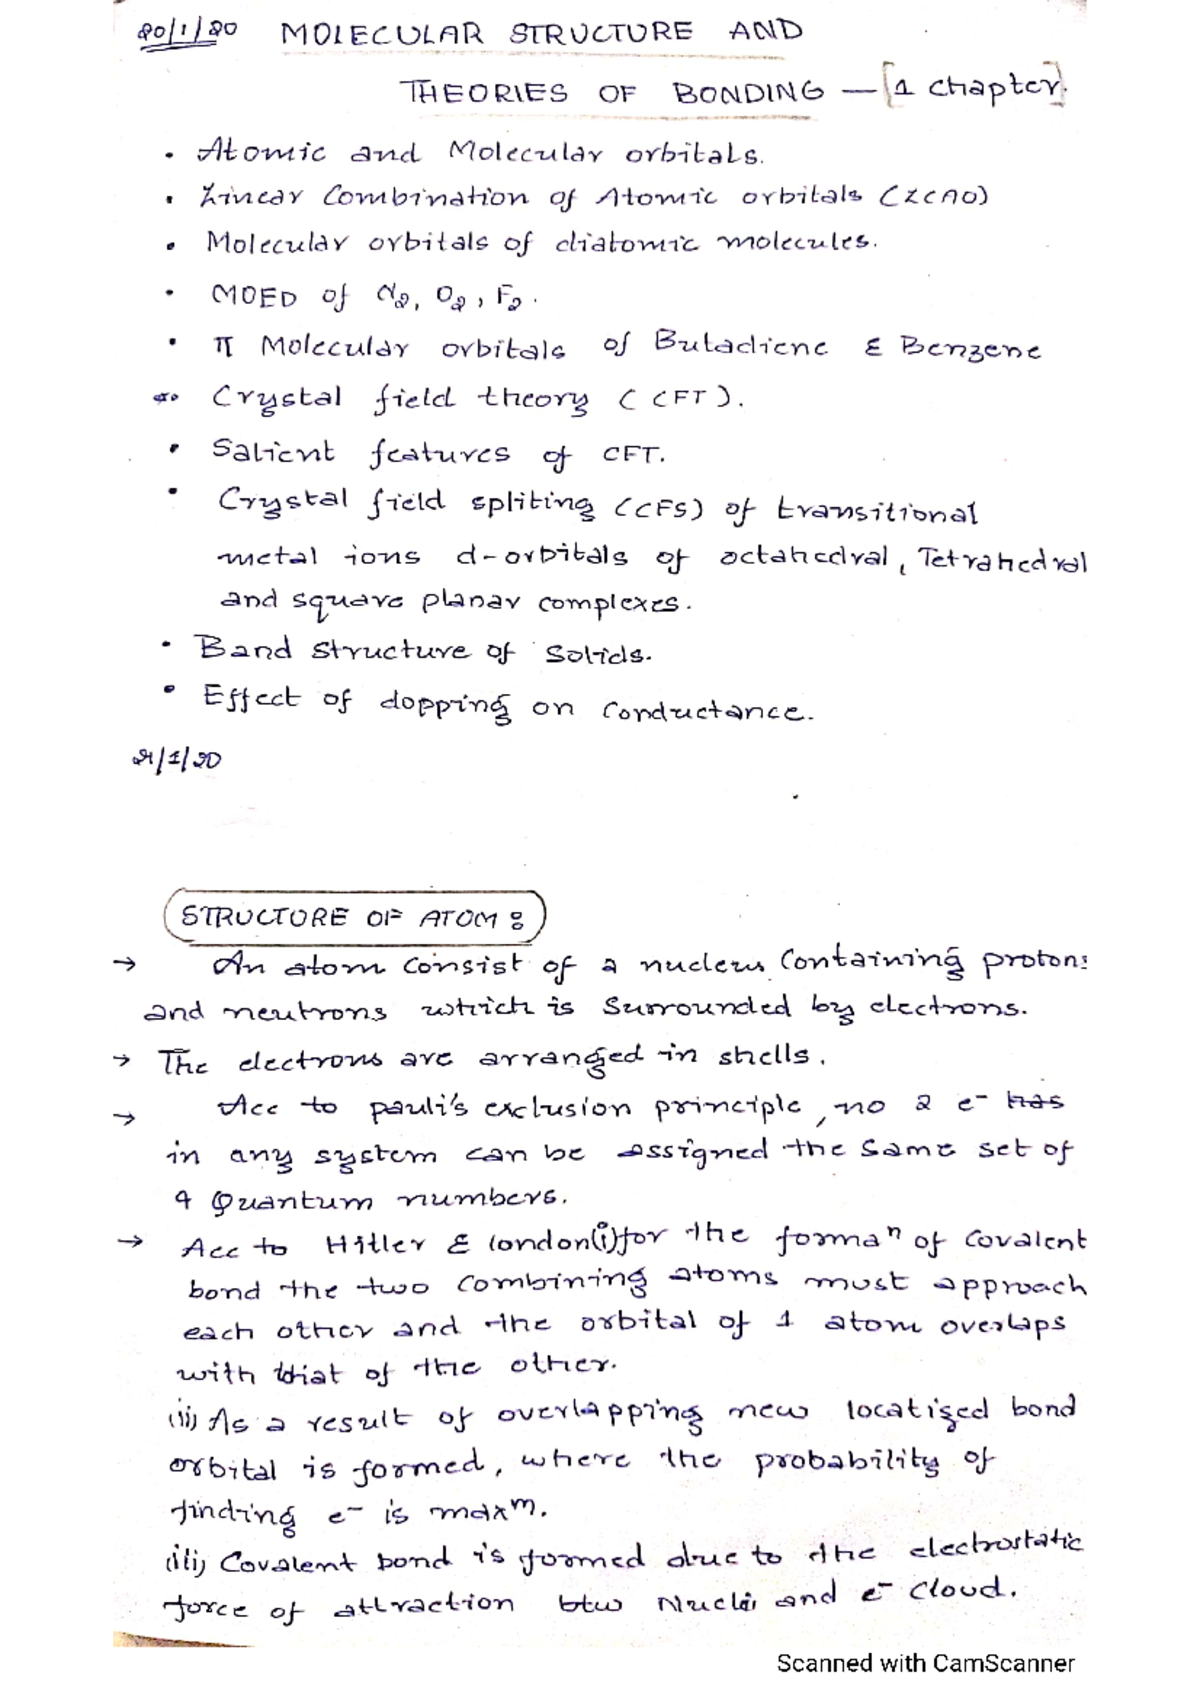 20/1/20 MOLECULAR STRUCTURE AND
THEORIES OF BONDING — [1 chapter].
• Atomic and Molecular orbitals.
• Linear Combination of Atomic orbitals (LCAO)
• Molecular orbitals of diatomic molecules.
• MOED of N2, O2, F2.
• π Molecular orbitals of Butadiene & Benzene
Crystal field theory (CFT).
• Salient features of CFT.
• Crystal field spliting (CFS) of transitional
metal ions d-orbitals of octahedral, Tetrahedral
and square planar complexes.
• Band structure of Solids.
• Effect of dopping on Conductance.
21/1/20
STRUCTURE OF ATOM :
→ An atom consist of a nucleus containing protons
and neutrons which is Surrounded by electrons.
→ The electrons are arranged in shells.
→ Acc to pauli's exclusion principle, no 2 e⁻ has
in any system can be assigned the same set of
4 Quantum numbers.
→ Acc to Hitler & london (i) for the formaⁿ of covalent
bond the two combining atoms must approach
each other and the orbital of 1 atom overlaps
with that of the other.
(ii) As a result of overlapping new locatized bond
orbital is formed, where the probability of
finding e⁻ is maxᵐ.
(iii) Covalent bond is formed due to the electrostatic
force of attraction btw Nuclei and e⁻ cloud.
Scanned with CamScanner